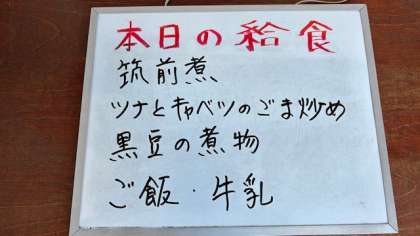 本日の給食
筑前煮
ツナとキャベツのごま炒め
黒豆の煮物
ご飯・牛乳